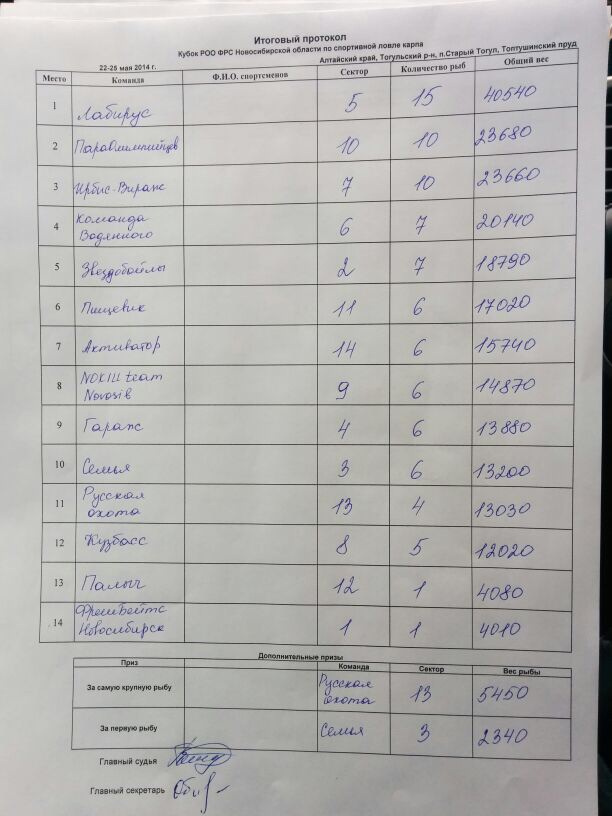 Итоговый протокол
Кубок РОО ФРС Новосибирской области по спортивной ловле карпа
22-25 мая 2014 г. Алтайский край, Тогульский р-н, п.Старый Тогул, Топтушинский пруд
Место Команда Ф.И.О. спортсменов Сектор Количество рыб Общий вес
1 Лабирус 5 15 40540
2 Параолимпийцев 10 10 23680
3 Ирбис-Виранс 7 10 23660
4 Команда Водянного 6 7 20140
5 Звездобойлы 2 7 18790
6 Пищевик 11 6 17020
7 Активатор 14 6 15740
8 NOKILL team Novosib 9 6 14870
9 Гаранс 4 6 13880
10 Семья 3 6 13200
11 Русская охота 13 4 13030
12 Кузбасс 8 5 12020
13 Палыч 12 1 4080
14 ФрешБейтс Новосибирск 1 1 4010
Дополнительные призы
Приз Команда Сектор Вес рыбы
За самую крупную рыбу Русская охота 13 5450
За первую рыбу Семья 3 2340
Главный судья
Главный секретарь